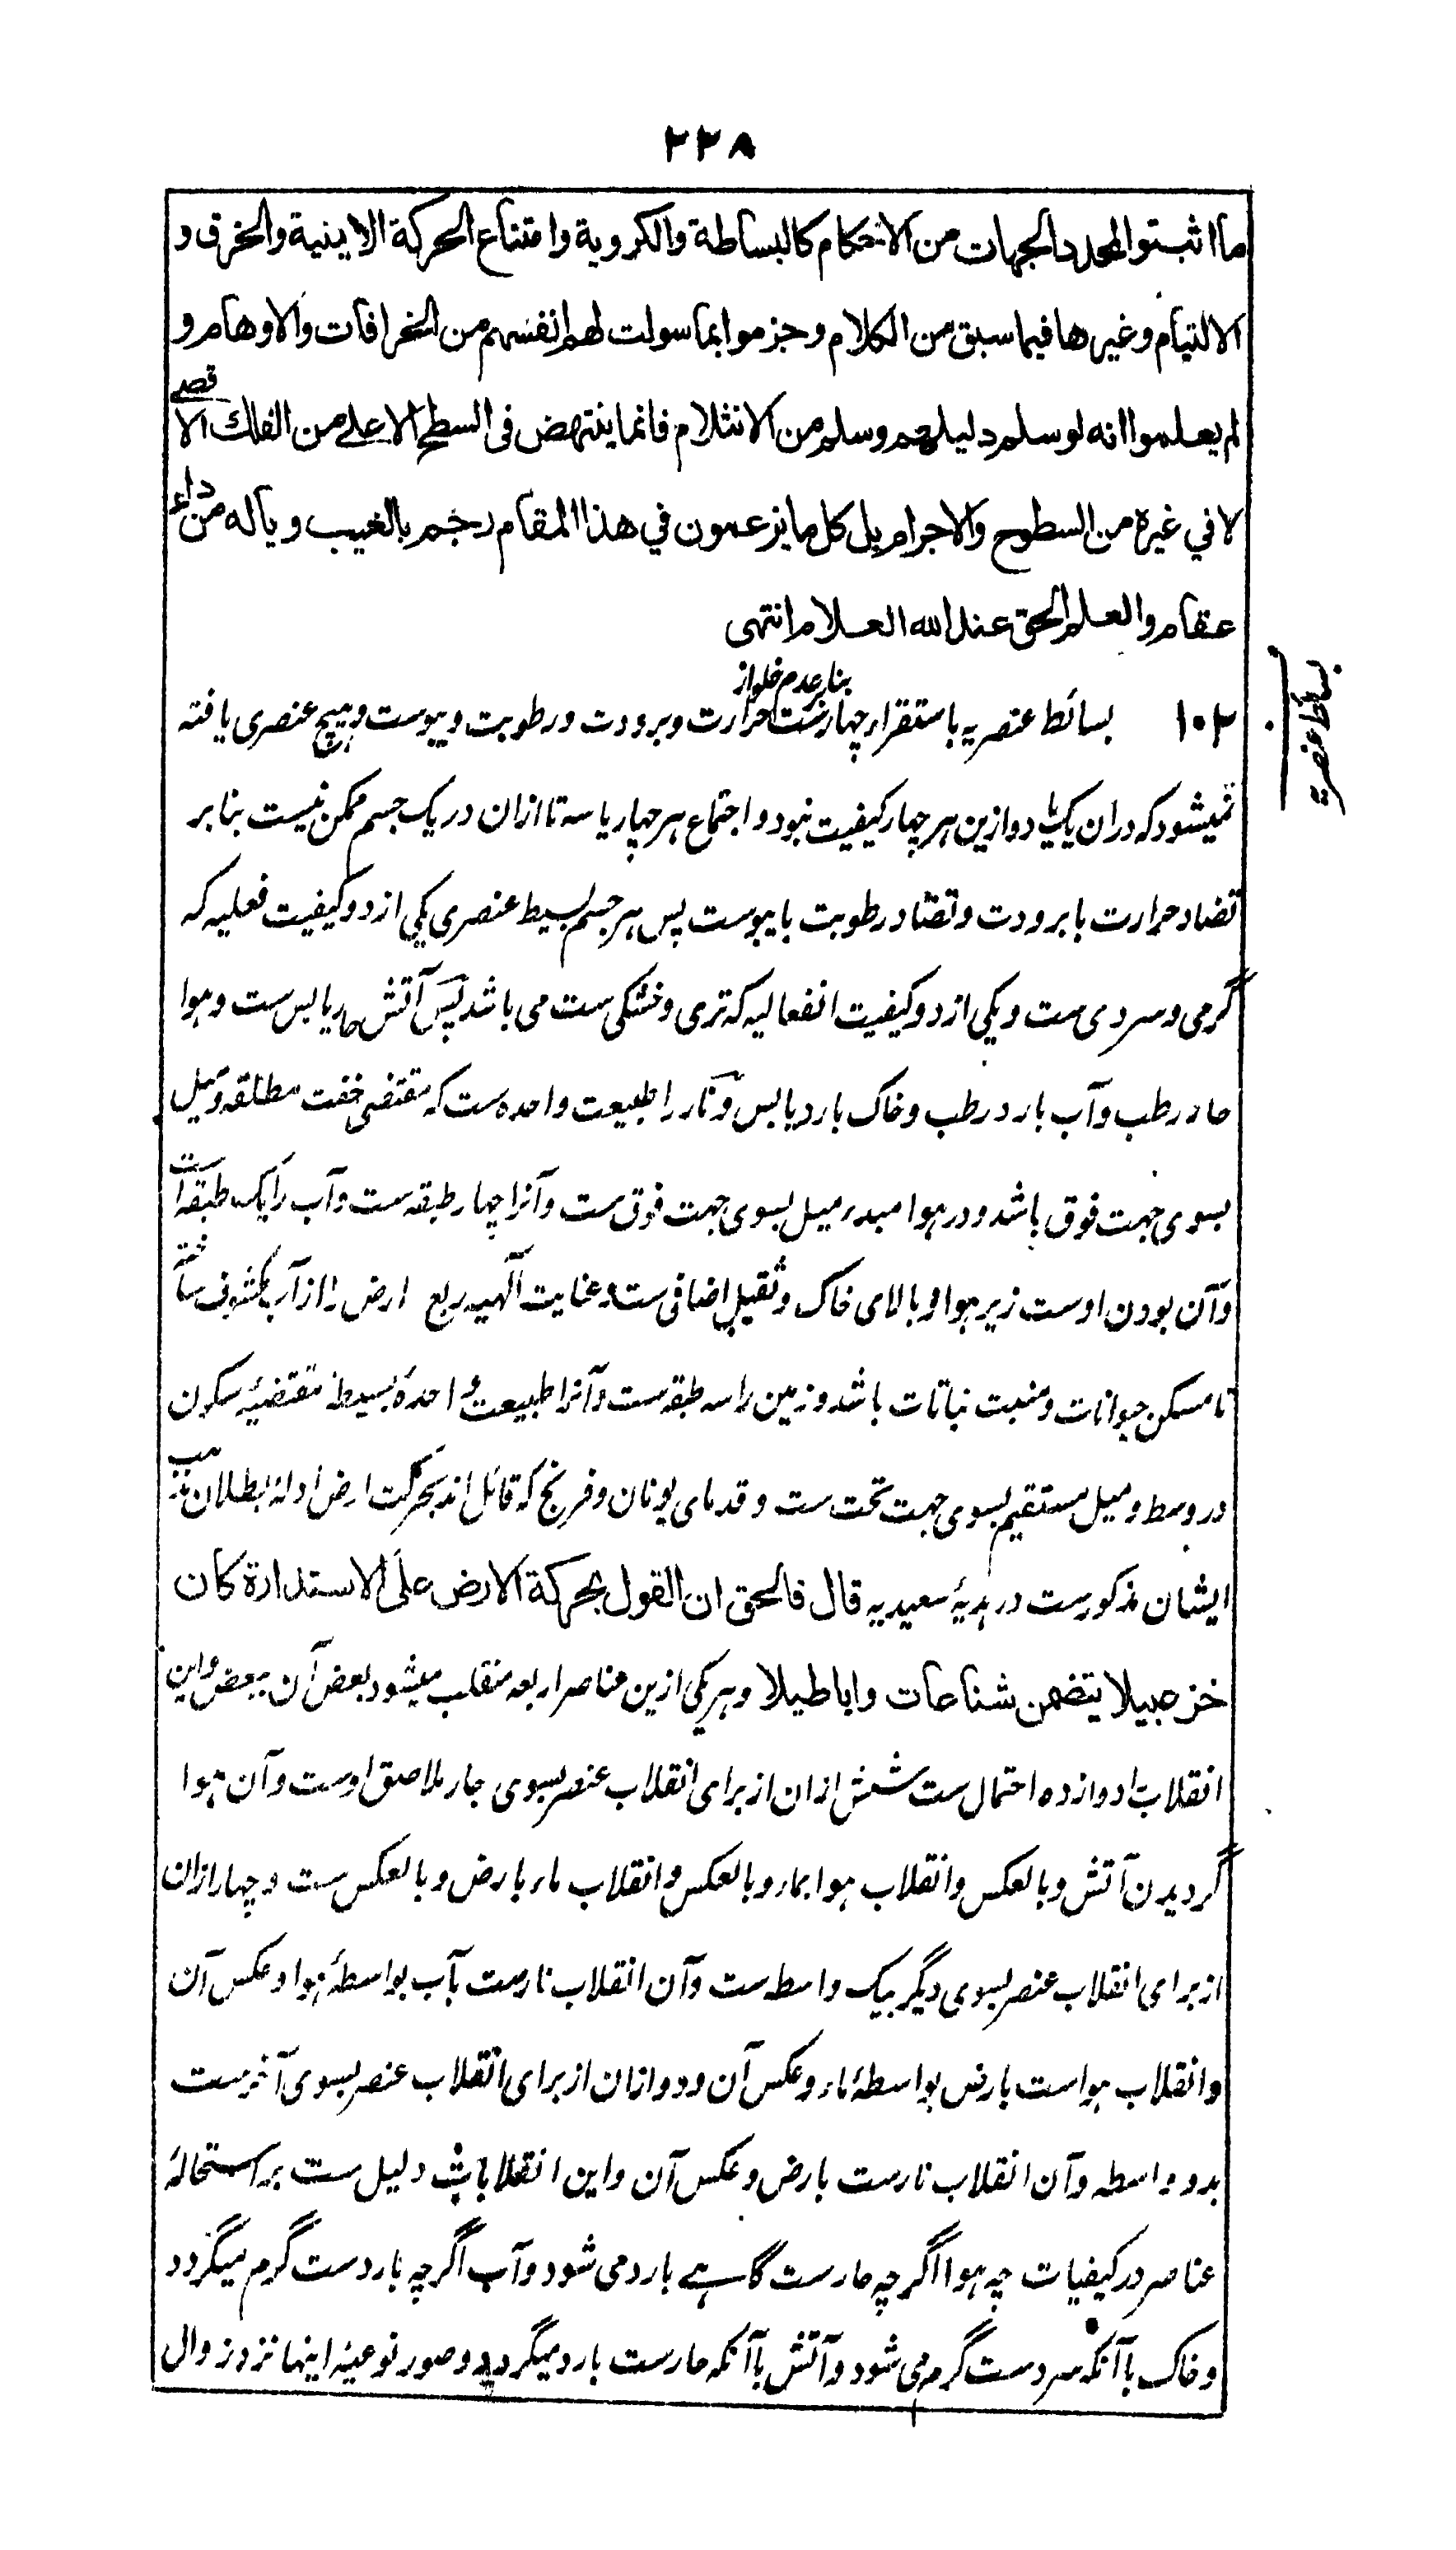 ۲۲۸
ما اثبتوا لمحدد الجهات من الاحكام كالبساطة والكروية وامتناع الحركة الاينية والخرق و
الالتيام وغيرها فيما سبق من الكلام وجزموا بما سولت لهم انفسهم من الخرافات والاوهام و
لم يعلموا انه لو سلم دليلهم وسلم من الانثلام فانما ينتهض فى السطح الاعلے من الفلك الاقصے
لا في غيره من السطوح والاجرام بل كل ما يزعمون في هذا المقام رجم بالغيب وياله من داء
عقام والعلم الحق عند الله العلام انتهى
بسائط عنصریه
۱۰۲ بسائط عنصریه باستقراء چهارست بنابر عدم خلو از حرارت وبرودت ورطوبت ویبوست وهیچ عنصری یافته
نمیشود که دران یک یا دو ازین هر چهار کیفیت نبود واجتماع هر چهار یا سه تا ازان در یک جسم ممکن نیست بنابر
تضاد حرارت با برودت وتضاد رطوبت با یبوست پس هر جسم بسیط عنصری یکی از دو کیفیت فعلیه که
گرمی وسردی ست ویکی از دو کیفیت انفعالیه که تری وخشکی ست می باشد پس آتش حار یابس ست وهوا
حار رطب وآب بارد رطب وخاک بارد یابس ونار را طبیعت واحده ست که مقتضی خفت مطلقه ومیل
بسوی جهت فوق باشد ودر هوا مبدء میل بسوی جهت فوق ست وآنرا چهار طبقه ست وآب را یک طبقه است
وآن بودن اوست زیر هوا وبالای خاک وثقیل اضافی ست وعنایت آلهیه ربع ارض را از آب مکشوف ساخته
تا مسکن حیوانات ومنبت نباتات باشد وزمین را سه طبقه ست وآنرا طبیعت واحدهٔ بسیطه مقتضیهٔ سکون
در وسط ومیل مستقیم بسوی جهت تحت ست وقدمای یونان وفرنج که قائل اند بحرکت ارض ادلهٔ بطلان مذهب
ایشان مذکورست در هدیهٔ سعیدیه قال فالحق ان القول بحركة الارض على الاستدارة كان
خزعبيلا يتضمن شناعات واباطيلا وهر یکی ازین عناصر اربعه منقلب میشود بعض آن ببعض واین
انقلاب را دوازده احتمال ست شش ازان از برای انقلاب عنصر بسوی جار ملاصق اوست وآن هوا
گردیدن آتش وبالعکس وانقلاب هوا بماء وبالعکس وانقلاب ماء بارض وبالعکس ست وچهار ازان
از برای انقلاب عنصر بسوی دیگر بیک واسطه ست وآن انقلاب نارست بآب بواسطهٔ هوا وعکس آن
وانقلاب هواست بارض بواسطهٔ ماء وعکس آن ودو ازان از برای انقلاب عنصر بسوی آخرست
بدو واسطه وآن انقلاب نارست بارض وعکس آن واین انقلابات دلیل ست بر استحالهٔ
عناصر در کیفیات چه هوا اگرچه حارست گاهے بارد می شود وآب اگرچه باردست گرم میگردد
وخاک با آنکه سردست گرم می شود وآتش با آنکه حارست بارد میگردد وصور نوعیهٔ اینها نزد زوال